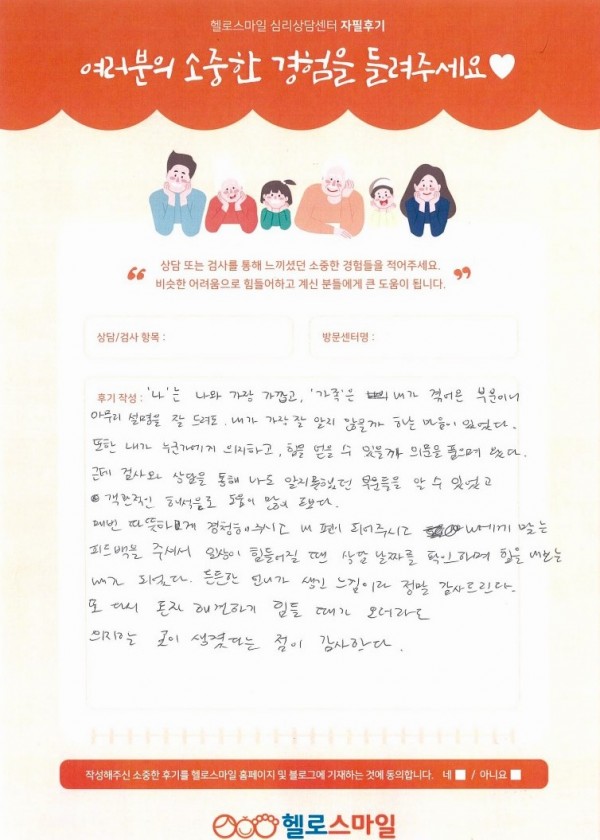 헬로스마일 심리상담센터 자필후기
여러분의 소중한 경험을 들려주세요♥
“ 상담 또는 검사를 통해 느끼셨던 소중한 경험들을 적어주세요. ”
비슷한 어려움으로 힘들어하고 계신 분들에게 큰 도움이 됩니다.
상담/검사 항목 :
방문센터명 :
후기 작성 : '나'는 나와 가장 가깝고, '가족'은 내가 겪어온 부분이니
아무리 설명을 잘 드려도, 내가 가장 잘 알지 않을까 하는 마음이 있었다.
또한 내가 누군가에게 의지하고, 힘을 얻을 수 있을까 의문을 품으며 왔다.
근데 검사와 상담을 통해 나도 알지못했던 부분들을 알 수 있었고
객관적인 해석으로 도움이 많이 되었다.
매번 따뜻하게 경청해주시고 내 편이 되어주시고 나에게 맞는
피드백을 주셔서 일상이 힘들어질 땐 상담 날짜를 확인하며 힘을 내는
내가 되었다. 든든한 언니가 생긴 느낌이라 정말 감사드린다.
또 다시 혼자 해결하기 힘들 때가 오더라도
의지하는 곳이 생겼다는 점이 감사하다.
작성해주신 소중한 후기를 헬로스마일 홈페이지 및 블로그에 기재하는 것에 동의합니다. 네 / 아니요
헬로스마일